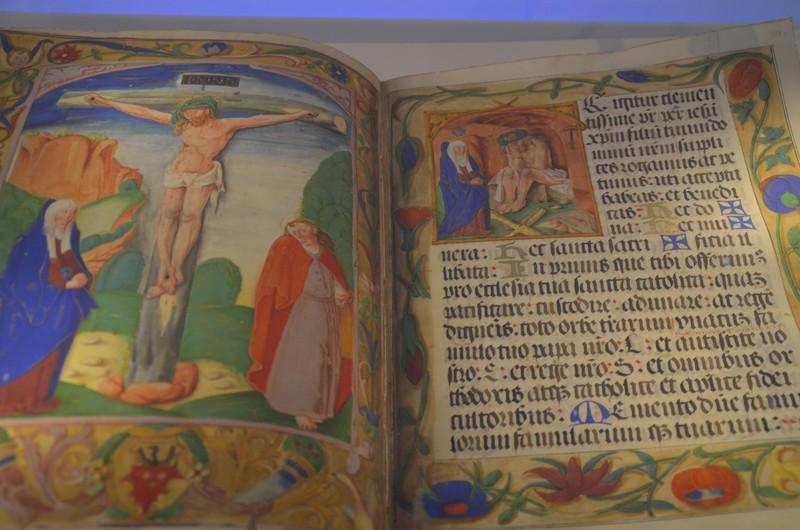 E igitur clemen
tissime pr per ihesū
xpm filiū tuū do
minū nr̄m suppli
ces rogamus ac pe
timus: uti accepta
habeas: et benedi
cas: Hec do ✠
na: Hec mu ✠
nera: Hec sancta sacri ✠ ficia il
libata: In primis que tibi offerimuz
pro ecclesia tua sancta catolica: quaz
pacificare: custodire: adunare: et rege
digneris: toto orbe tr̄arum vnacuz fa
mulo tuo papa nr̄o: L: et antistite no
stro: E: et rege nr̄o: S: et omnibus or
thodoxis atqz catholice et aplice fidei
cultoribus: Memento dn̄e famu
lorum famularum qz tuarum: